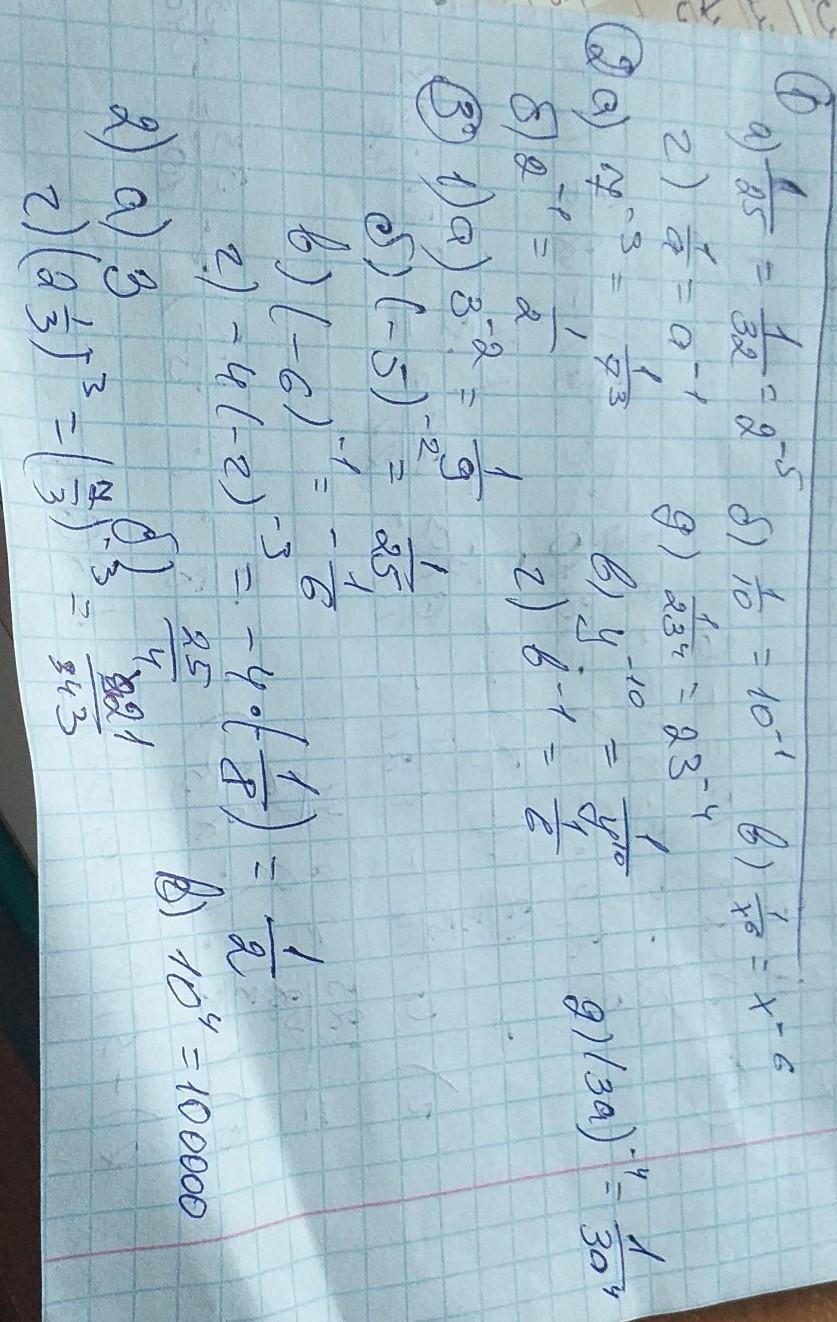 ① а) 1/25 = 1/32 = 2⁻⁵ б) 1/10 = 10⁻¹ в) 1/x⁶ = x⁻⁶
г) 1/a = a⁻¹ д) 1/23⁴ = 23⁻⁴
② а) 7⁻³ = 1/7³ в) y⁻¹⁰ = 1/y¹⁰ д) (3a)⁻⁴ = 1/3a⁴
б) 2⁻¹ = 1/2 г) b⁻¹ = 1/b
③ 1) а) 3⁻² = 1/9
б) (-5)⁻² = 1/25
в) (-6)⁻¹ = -1/6
г) -4(-2)⁻³ = -4·(-1/8) = 1/2
2) а) 3 б) 25/4 в) 10⁴ = 100000
г) (2 1/3)⁻³ = (7/3)⁻³ = /343